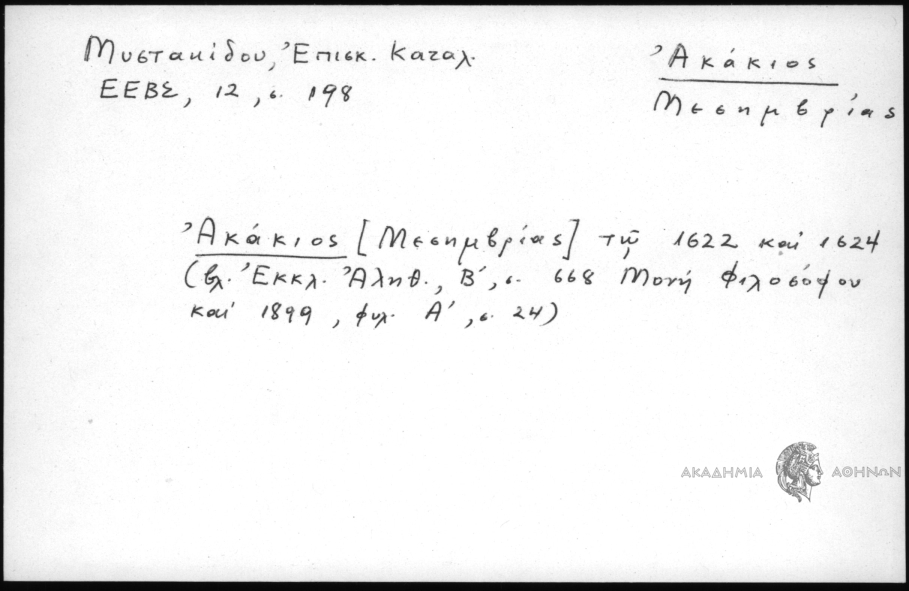 Μυστακίδου, Ἐπισκ. Καταλ.
ΕΕΒΣ, 12, σ. 198
Ἀκάκιος
Μεσημβρίας
Ἀκάκιος [Μεσημβρίας] τῷ 1622 καὶ 1624
(βλ. Ἐκκλ. Ἀληθ., Β', σ. 668 Μονή Φιλοσόφου
καὶ 1899, φυλ. Α', σ. 24)
ΑΚΑΔΗΜΙΑ ΑΘΗΝΩΝ